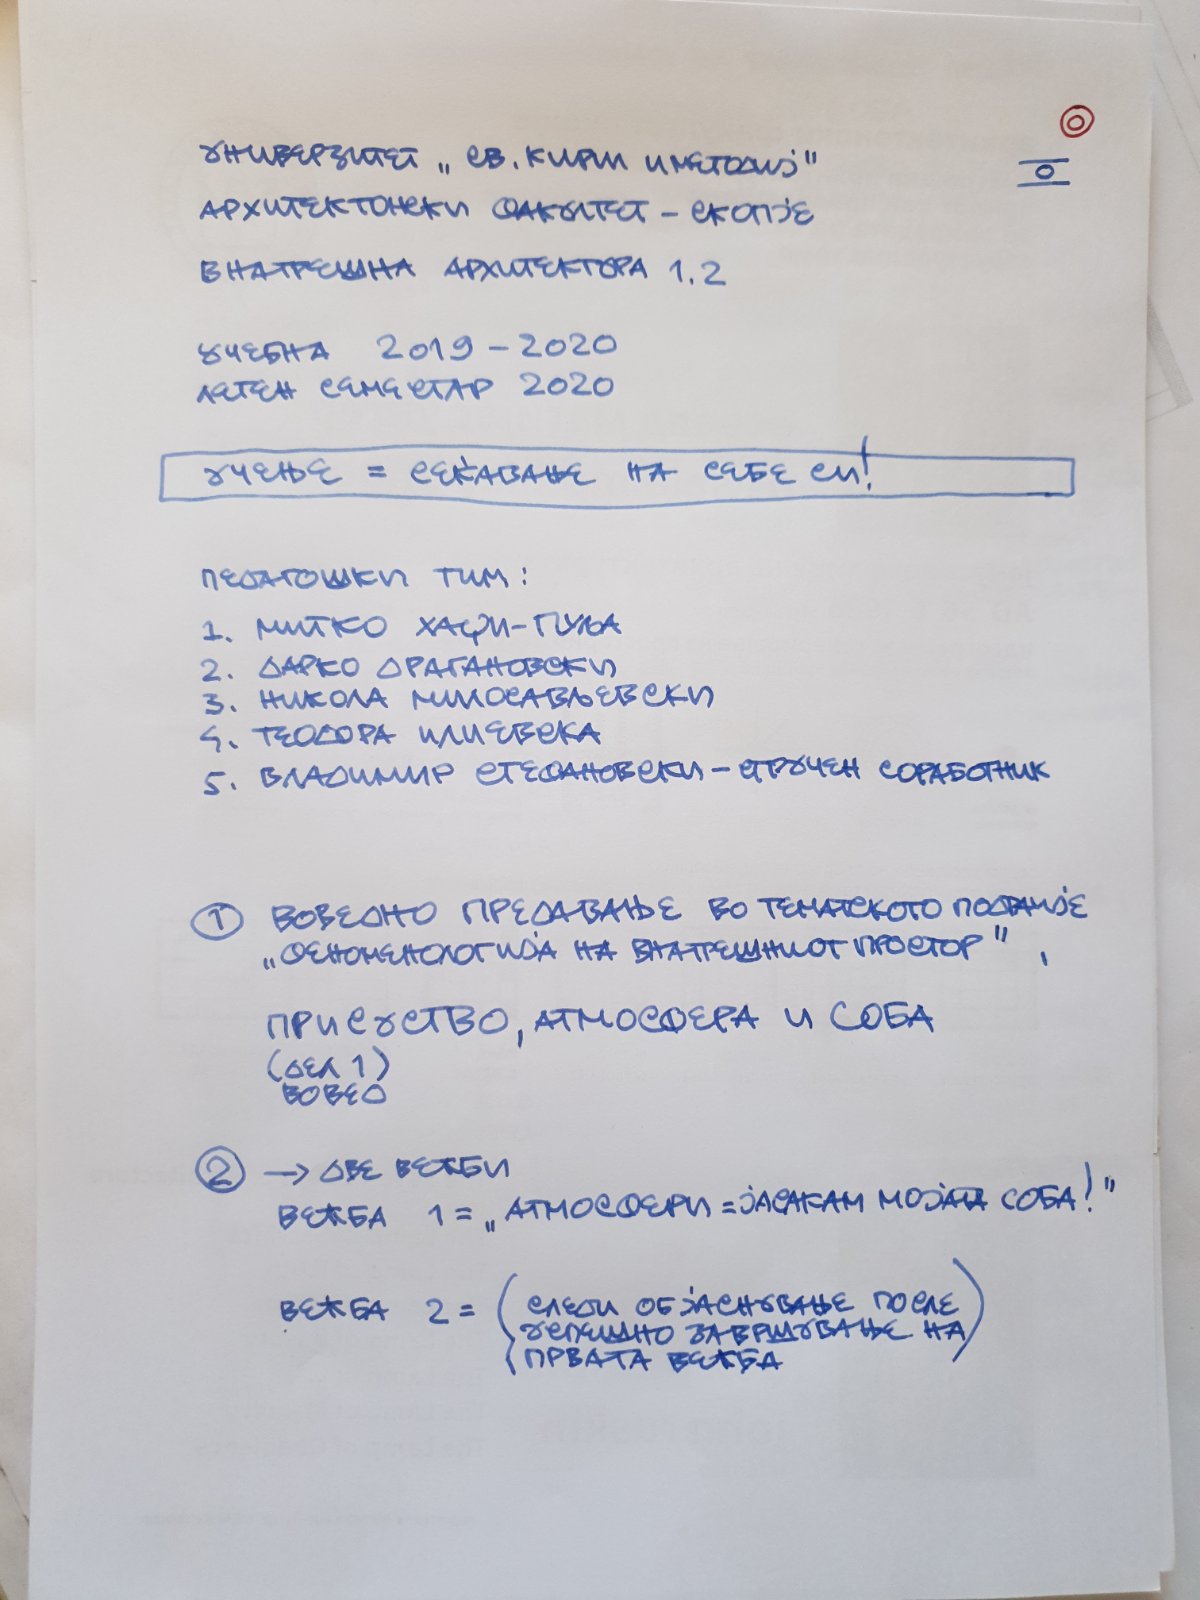 0
0
УНИВЕРЗИТЕТ „СВ. КИРИЛ И МЕТОДИЈ"
АРХИТЕКТОНСКИ ФАКУЛТЕТ – СКОПЈЕ
ВНАТРЕШНА АРХИТЕКТУРА 1.2
УЧЕБНА 2019 – 2020
ЛЕТЕН СЕМЕСТАР 2020
УЧЕЊЕ = СЕЌАВАЊЕ НА СЕБЕ СИ!
ПЕДАГОШКИ ТИМ:
1. МИТКО ХАЏИ-ПУЉА
2. ДАРКО ДРАГАНОВСКИ
3. НИКОЛА МИЛОСАВЉЕВСКИ
4. ТЕОДОРА ИЛИЕВСКА
5. ВЛАДИМИР СТЕФАНОВСКИ – СТРУЧЕН СОРАБОТНИК
1 ВОВЕДНО ПРЕДАВАЊЕ ВО ТЕМАТСКОТО ПОДРАЧЈЕ
„ФЕНОМЕНОЛОГИЈА НА ВНАТРЕШНИОТ ПРОСТОР",
ПРИСУСТВО, АТМОСФЕРА И СОБА
(ДЕЛ 1)
ВОВЕД
2 → ДВЕ ВЕЖБИ
ВЕЖБА 1 = „АТМОСФЕРИ = ЈАСАКАМ МОЈАТА СОБА!"
ВЕЖБА 2 = (СЛЕДИ ОБЈАСНУВАЊЕ ПОСЛЕ
УСПЕШНО ЗАВРШУВАЊЕ НА
ПРВАТА ВЕЖБА)